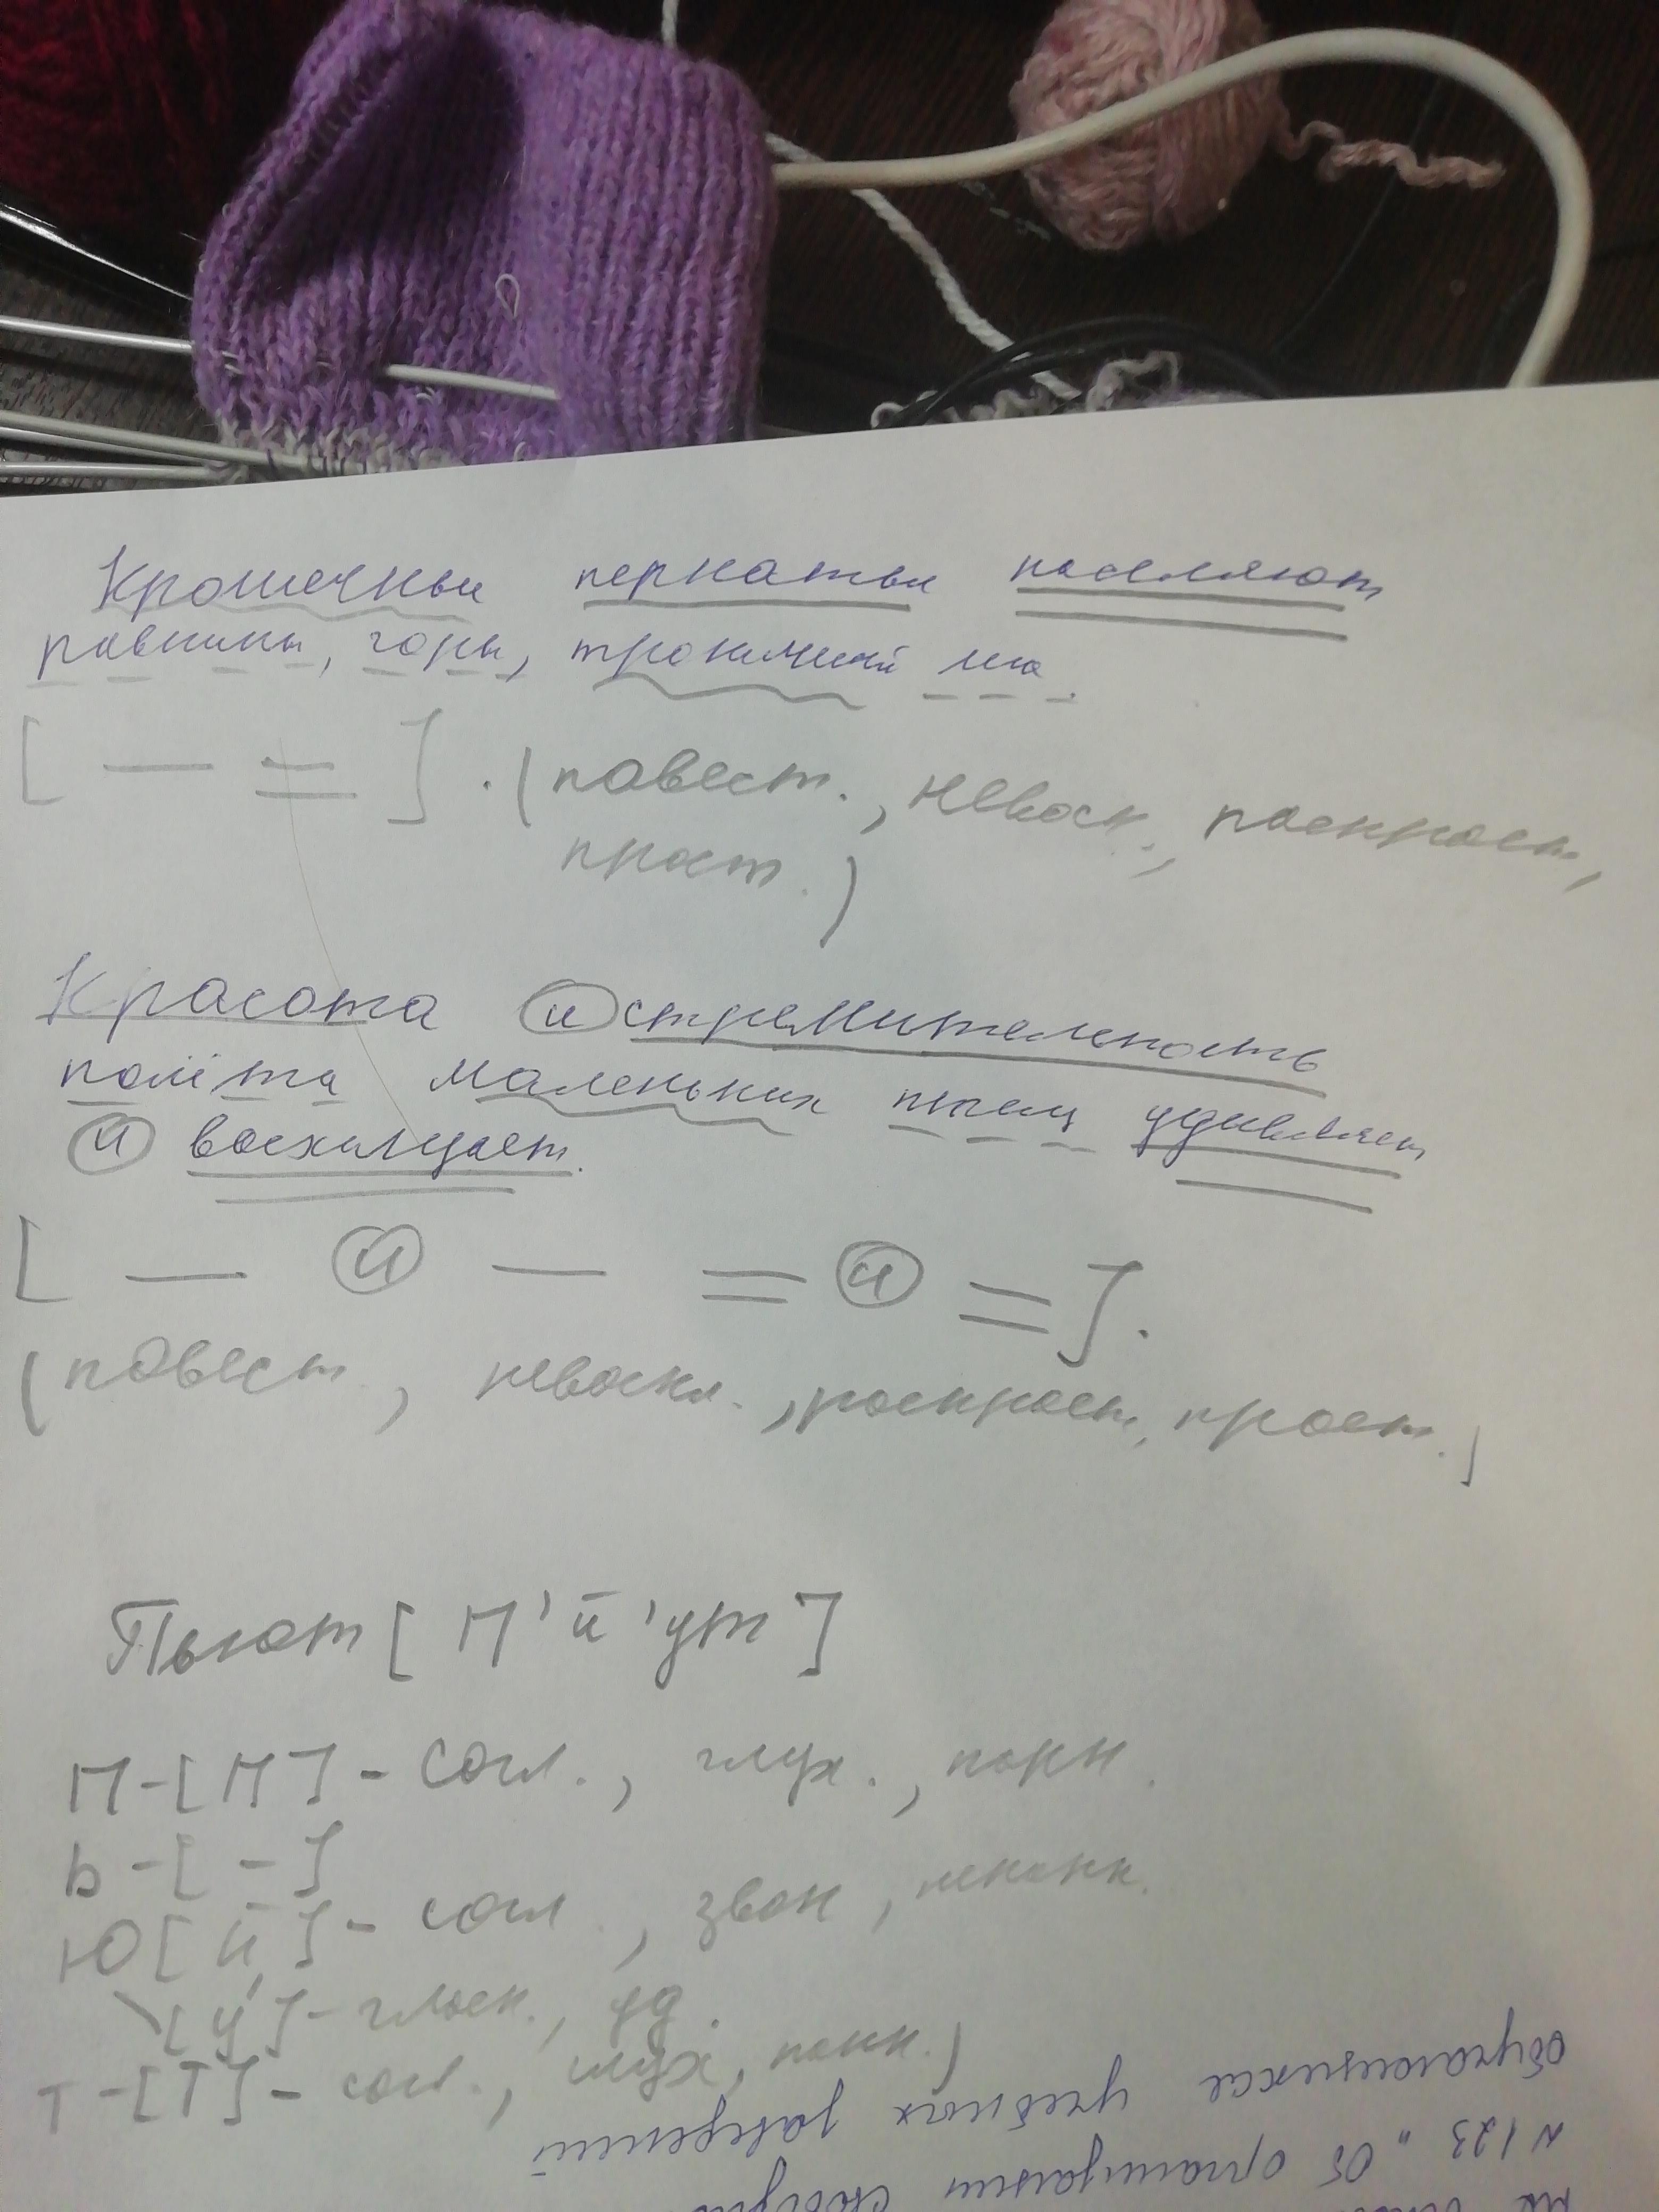 Крошечные пернатые населяют
равнины, горы, тропический лес.
[ — = ] . (повест., невоск., распрост.,
прост.)
Красота и стремительность
полёта маленьких птиц удивляет
и восхищает.
[ — и — = и = ].
(повест., невоскл., распрост., прост.)
Пьют [П'й'ут]
П-[П'] - согл., глух., парн.
ь-[-]
Ю[й'] - согл., звон, непарн.
\[у] - гласн., уд.
т-[Т] - согл., глух, парн.)
обучающихся
учебных заведений
№123 „Об организации